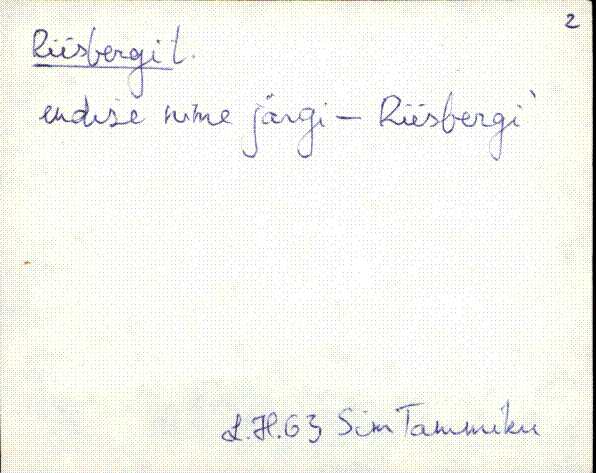 2
Riisbergi t.
endise nime järgi – Riisbergi
L.H.63 Sim Tammiku